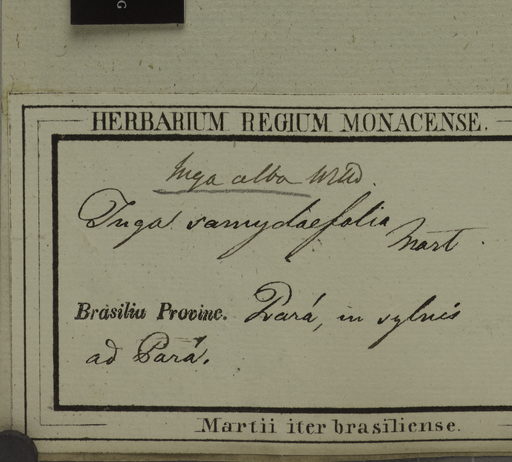 G
HERBARIUM REGIUM MONACENSE.
Inga alba Willd.
Inga samydaefolia Mart.
Brasilia Provinc. Pará, in sylvis
ad Pará.
Martii iter brasiliense.